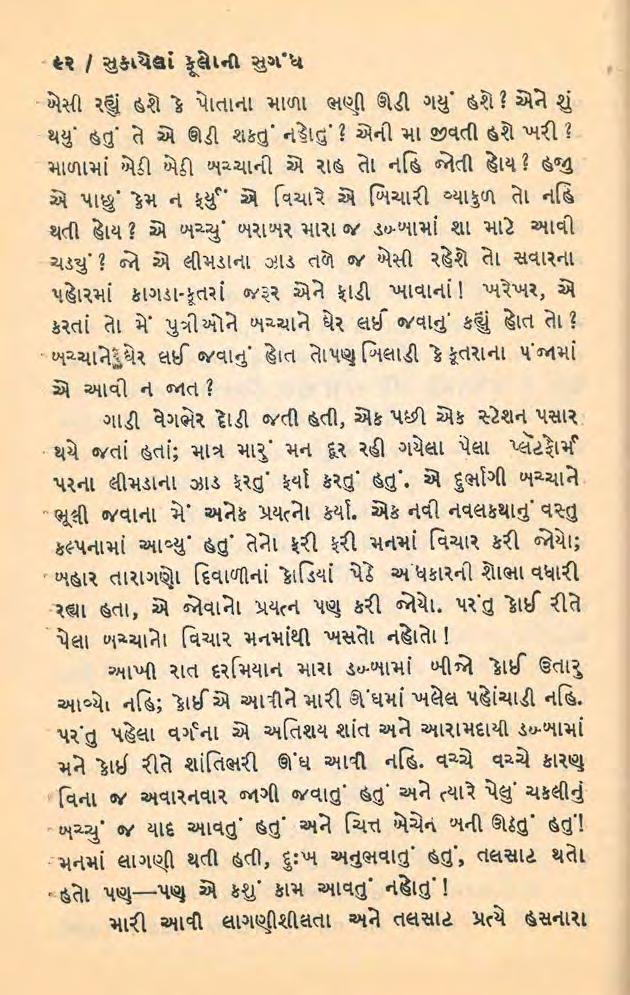 ૯૨ / સુકાયેલાં ફૂલોની સુગંધ
બેસી રહ્યું હશે કે પોતાના માળા ભણી ઊડી ગયું હશે? એને શું
થયું હતું તે એ ઊડી શકતું નહોતું? એની મા જીવતી હશે ખરી?
માળામાં બેઠી બેઠી બચ્ચાની એ રાહ તો નહિ જોતી હોય? હજુ
એ પાછું કેમ ન ફર્યું એ વિચારે એ બિચારી વ્યાકુળ તો નહિ
થતી હોય? એ બચ્ચું બરાબર મારા જ ડબ્બામાં શા માટે આવી
ચડયું? જો એ લીમડાના ઝાડ તળે જ બેસી રહેશે તો સવારના
પહોરમાં કાગડા-કૂતરાં જરૂર એને ફાડી ખાવાનાં! ખરેખર, એ
કરતાં તો મેં પુત્રીઓને બચ્ચાને ઘેર લઈ જવાનું કહ્યું હોત તો?
બચ્ચાને ઘેર લઈ જવાનું હોત તોપણ બિલાડી કે કૂતરાના પંજામાં
એ આવી ન જાત?
ગાડી વેગભેર દોડી જતી હતી, એક પછી એક સ્ટેશન પસાર
થયે જતાં હતાં; માત્ર મારું મન દૂર રહી ગયેલા પેલા પ્લૅટફૉર્મ
પરના લીમડાના ઝાડ ફરતું ફર્યા કરતું હતું. એ દુર્ભાગી બચ્ચાને
ભૂલી જવાના મેં અનેક પ્રયત્નો કર્યા. એક નવી નવલકથાનું વસ્તુ
કલ્પનામાં આવ્યું હતું તેનો ફરી ફરી મનમાં વિચાર કરી જોયો;
બહાર તારાગણો દિવાળીનાં કોડિયાં પેઠે અંધકારની શોભા વધારી
રહ્યા હતા, એ જોવાનો પ્રયત્ન પણ કરી જોયો. પરંતુ કોઈ રીતે
પેલા બચ્ચાનો વિચાર મનમાંથી ખસતો નહોતો!
આખી રાત દરમિયાન મારા ડબ્બામાં બીજો કોઈ ઉતારુ
આવ્યો નહિ; કોઈએ આવીને મારી ઊંઘમાં ખલેલ પહોંચાડી નહિ.
પરંતુ પહેલા વર્ગના એ અતિશય શાંત અને આરામદાયી ડબ્બામાં
મને કોઈ રીતે શાંતિભરી ઊંઘ આવી નહિ. વચ્ચે વચ્ચે કારણ
વિના જ અવારનવાર જાગી જવાતું હતું અને ત્યારે પેલું ચકલીનું
બચ્ચું જ યાદ આવતું હતું અને ચિત્ત બેચેન બની ઊઠતું હતું!
મનમાં લાગણી થતી હતી, દુઃખ અનુભવાતું હતું, તલસાટ થતો
હતો પણ—પણ એ કશું કામ આવતું નહોતું!
મારી આવી લાગણીશીલતા અને તલસાટ પ્રત્યે હસનારા